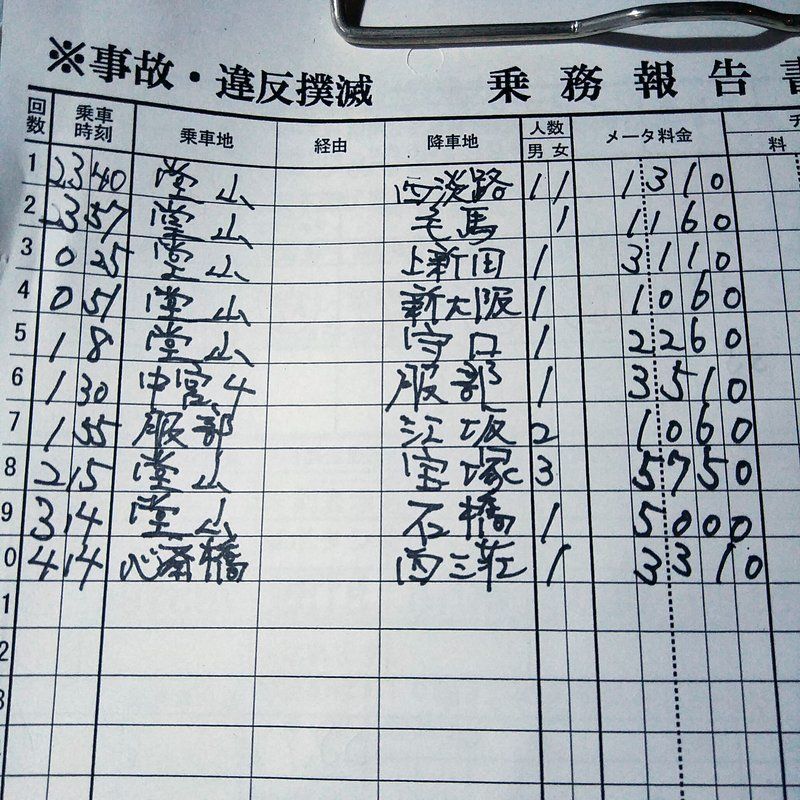 ※事故・違反撲滅 乗務報告書
回数 乗車時刻 乗車地 経由 降車地 人数 男 女 メータ料金 料
1 23 40 堂山 西淡路 1 1 1310
2 23 57 堂山 毛馬 1 1160
3 0 25 堂山 上新田 1 3110
4 0 51 堂山 新大阪 1 1060
5 1 8 堂山 守口 1 2260
6 1 30 中宮4 服部 1 3510
7 1 55 服部 江坂 2 1060
8 2 15 堂山 宝塚C 3 5750
9 3 14 堂山 石橋 1 5000
0 4 14 心斎橋 西三荘 1 3310
1
2
3
4